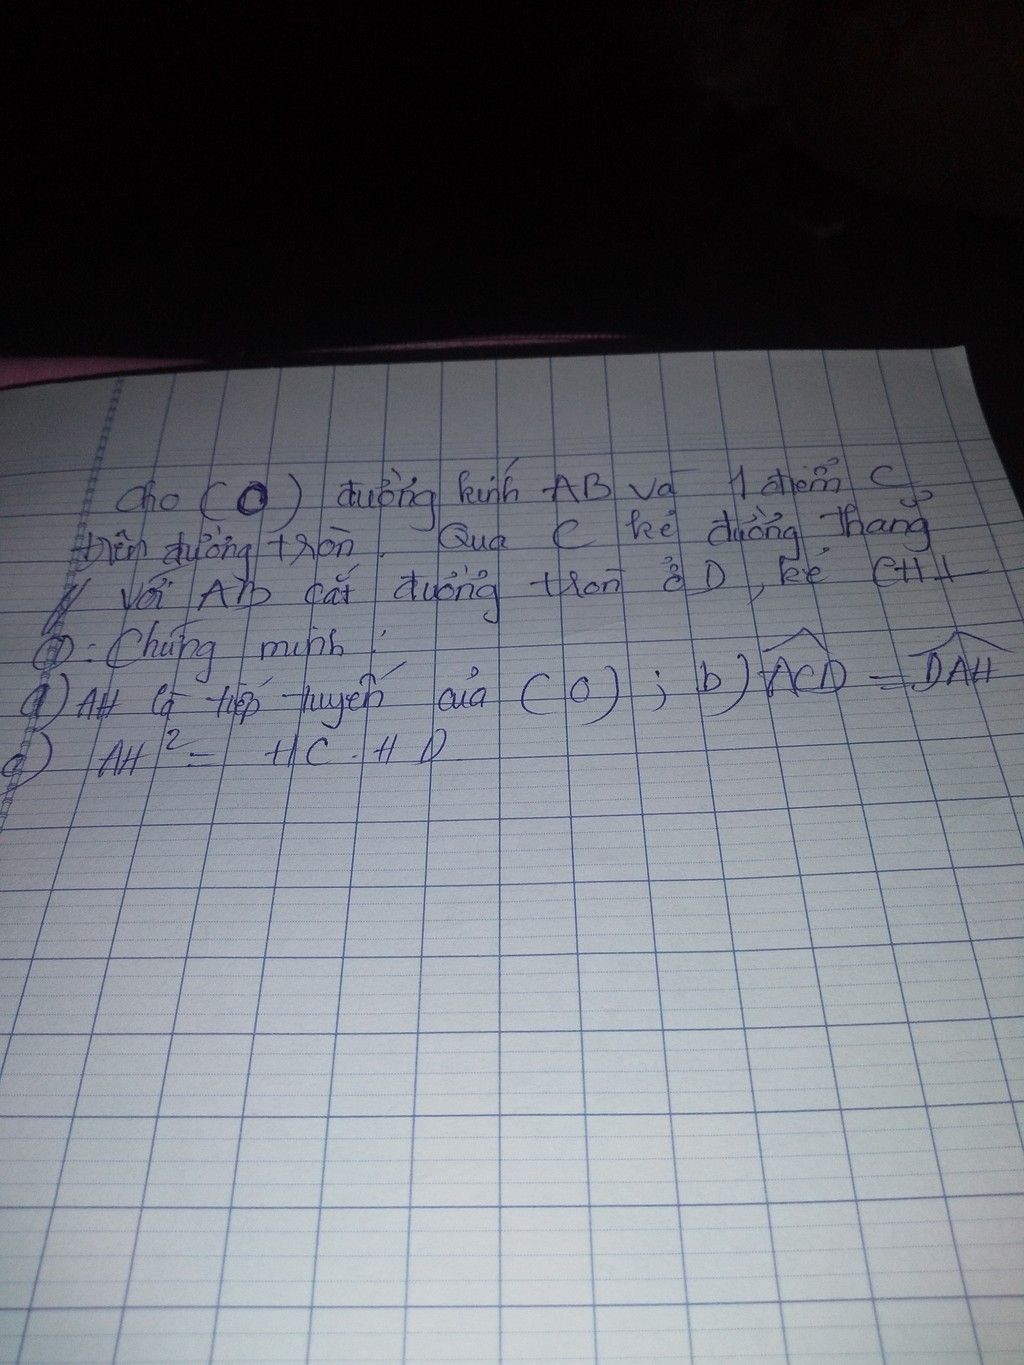 Cho (O) đường kính AB và 1 điểm C
trên đường tròn. Qua C kẻ đường thẳng
// với AB cắt đường tròn ở D, kẻ CH ⊥
: Chứng minh:
a) AH là tiếp tuyến của (O); b) ACD = DAH
c) AH² = HC. HD